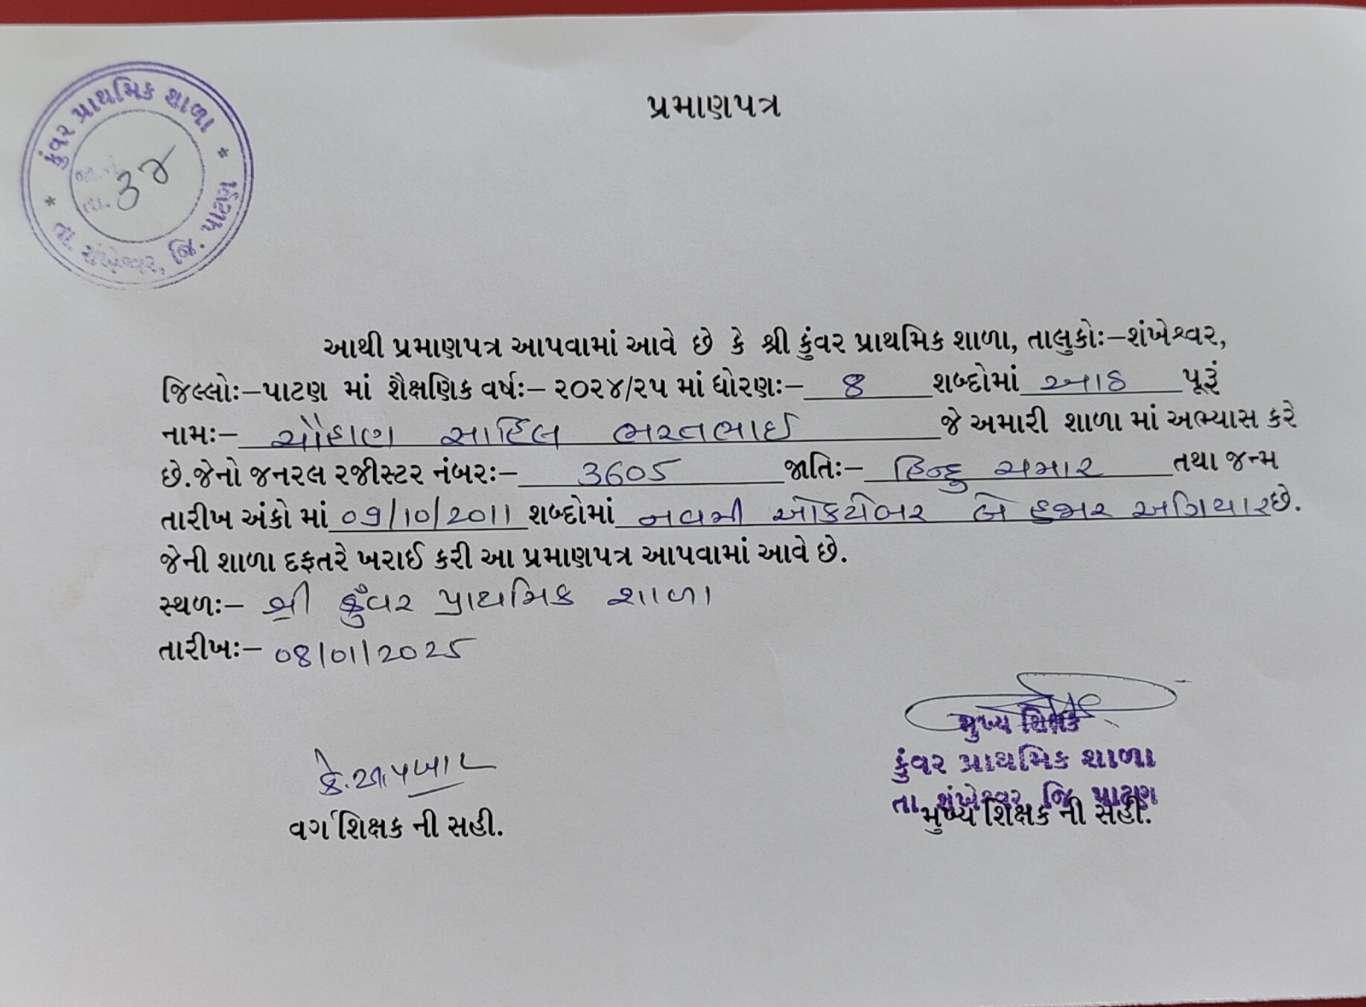 કુંવર પ્રાથમિક શાળા
૩૪
તા. શંખેશ્વર, જિ. પાટણ
પ્રમાણપત્ર
આથી પ્રમાણપત્ર આપવામાં આવે છે કે શ્રી કુંવર પ્રાથમિક શાળા, તાલુકોઃ-શંખેશ્વર,
જિલ્લોઃ-પાટણ માં શૈક્ષણિક વર્ષઃ- ૨૦૨૪/૨૫ માં ધોરણઃ- 8 શબ્દોમાં આઠ પૂરૂં
નામઃ- ચૌહાણ સાહિલ ભરતભાઈ જે અમારી શાળા માં અભ્યાસ કરે
છે.જેનો જનરલ રજીસ્ટર નંબરઃ- 3605 જાતિઃ- હિન્દુ ચમાર તથા જન્મ
તારીખ અંકો માં 09/10/2011 શબ્દોમાં નવમી ઓક્ટોબર બે હજાર અગિયાર છે.
જેની શાળા દફતરે ખરાઈ કરી આ પ્રમાણપત્ર આપવામાં આવે છે.
સ્થળઃ- શ્રી કુઁવર પ્રાથમિક શાળા
તારીખઃ- 08/01/2025
મુખ્ય શિક્ષક
કુંવર પ્રાથમિક શાળા
તા. શંખેશ્વર જિ. પાટણ
વર્ગ શિક્ષક ની સહી.
મુખ્ય શિક્ષક ની સહી.